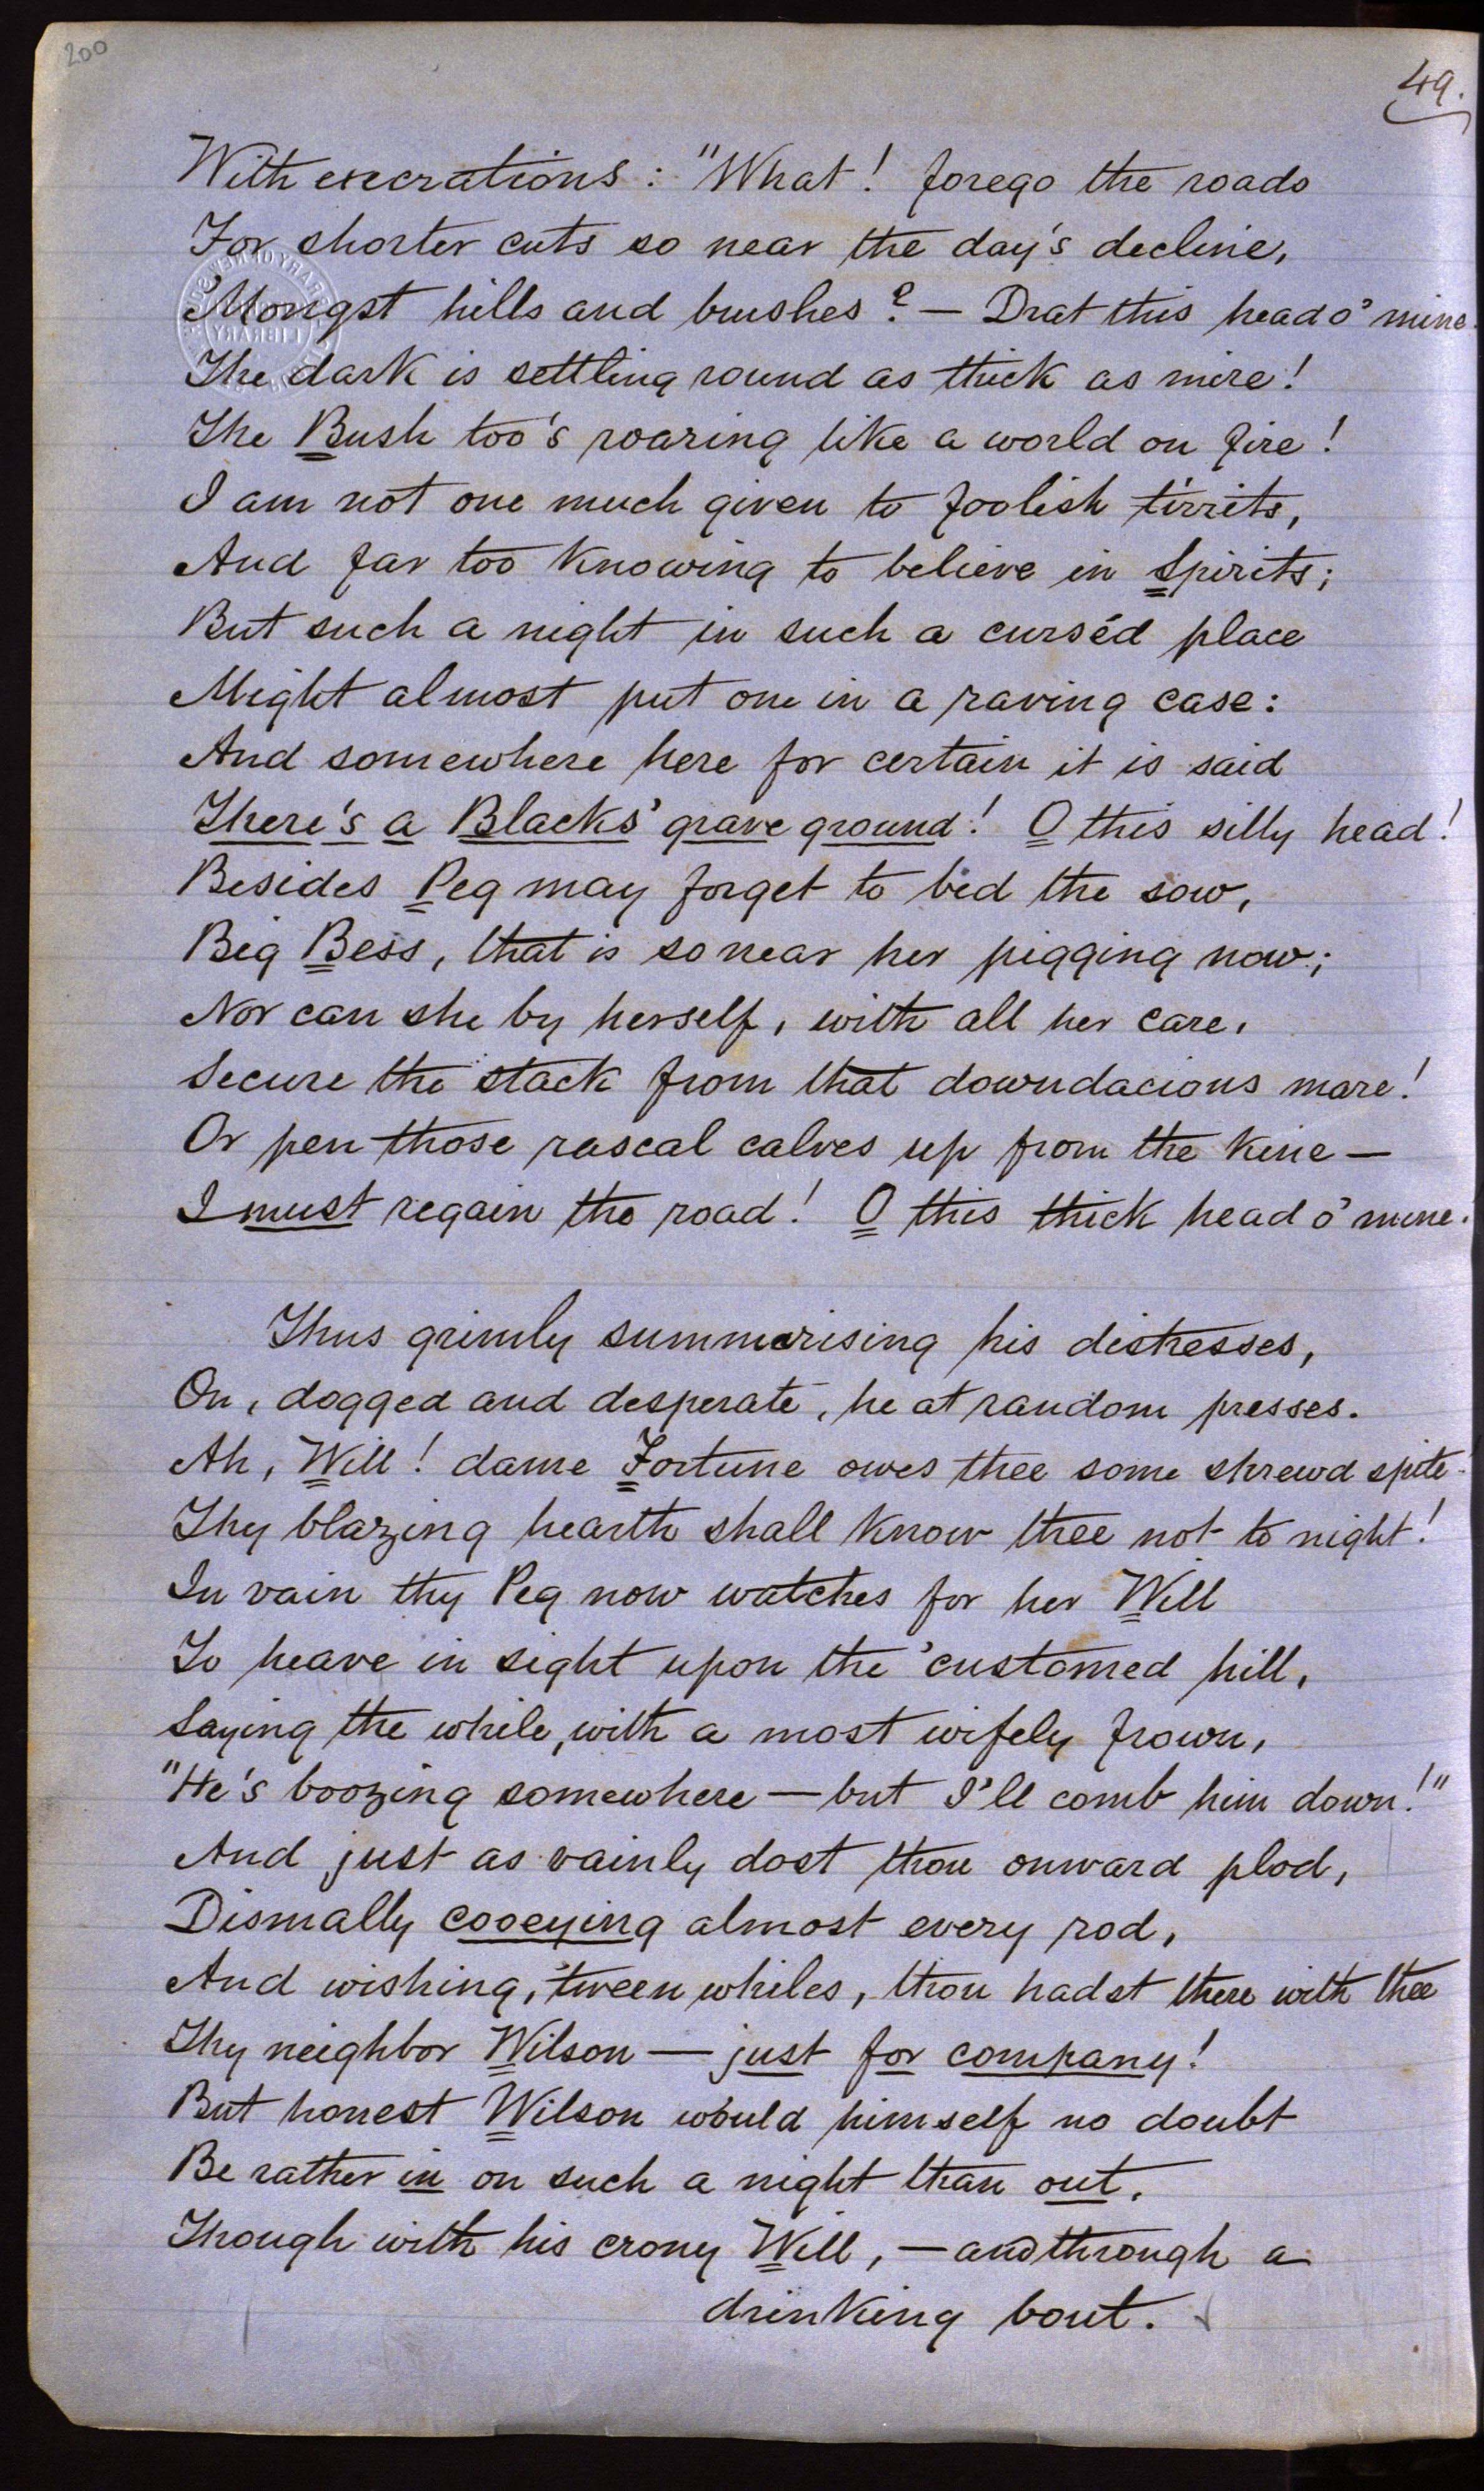 200
49.
With execrations: "What! forego the roads
For shorter cuts so near the day's decline,
'Mongst hills and brushes? — Drat this head o' mine.
The dark is settling round as thick as mire!
The Bush too's roaring like a world on fire!
I am not one much given to foolish tirrits,
And far too knowing to believe in Spirits;
But such a night in such a curséd place
Might almost put one in a raving case:
And somewhere here for certain it is said
There's a Blacks' grave ground! O this silly head!
Besides Peg may forget to bed the sow,
Big Bess, that is so near her pigging now;
Nor can she by herself, with all her care,
Secure the stack from that downdacious mare!
Or pen those rascal calves up from the kine —
I must regain the road! O this thick head o' mine.
Thus grimly summarising his distresses,
On, dogged and desperate, he at random presses.
Ah, Will! dame Fortune owes thee some shrewd spite —
Thy blazing hearth shall know thee not to night!
In vain thy Peg now watches for her Will
To heave in sight upon the 'customed hill,
Saying the while, with a most wifely frown,
"He's boozing somewhere — but I'll comb him down!"
And just as vainly dost thou onward plod,
Dismally cooeying almost every rod,
And wishing, 'tween whiles, thou hadst there with thee
Thy neighbor Wilson — just for company!
But honest Wilson would himself no doubt
Be rather in on such a night than out,
Though with his crony Will, — and through a
drinking bout.